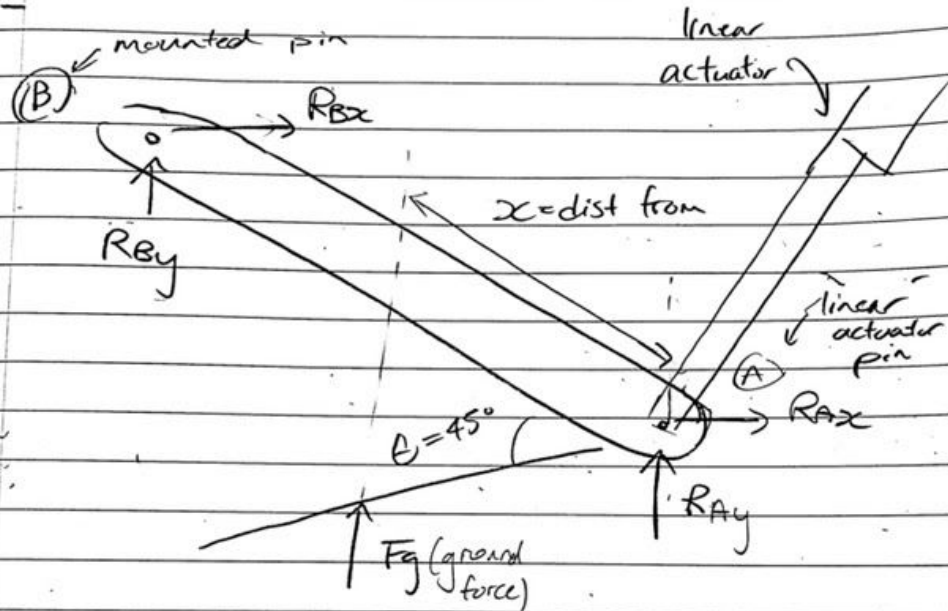 mounted pin
B
RBx
RBy
linear
actuator
x = dist from
linear
actuator
pin
A
RAx
θ = 45°
RAy
Fg (ground
force)